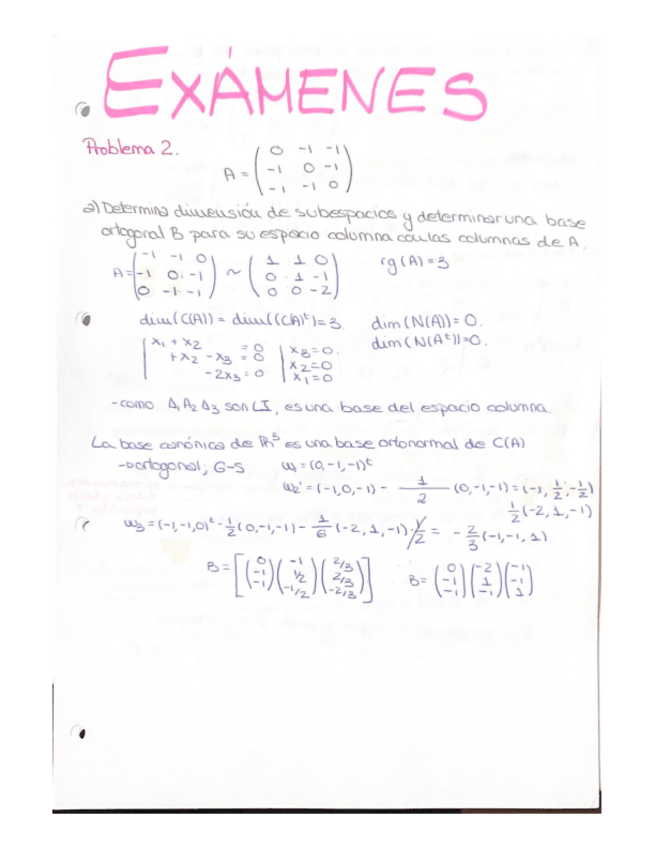 EXÁMENES
Problema 2.
A = ( 0 -1 -1 / -1 0 -1 / -1 -1 0 )
a) Determina dimensión de subespacios y determinar una base
ortogonal B para su espacio columna con las columnas de A.
A = ( -1 -1 0 / -1 0 -1 / 0 -1 -1 ) ~ ( 1 1 0 / 0 1 -1 / 0 0 -2 ) rg(A) = 3
dim(C(A)) = dim((C(A)ᵗ) = 3. dim(N(A)) = 0.
dim(N(Aᵗ)) = 0.
x₁ + x₂ = 0 | x₃ = 0.
+ x₂ - x₃ = 0 | x₂ = 0
- 2x₃ = 0 | x₁ = 0
- como A₁ A₂ A₃ son LI, es una base del espacio columna.
La base canónica de ℝ³ es una base ortonormal de C(A)
→ ortogonal; G-S w₁ = (0, -1, -1)ᵗ
w₂' = (-1, 0, -1) - 1/2 (0, -1, -1) = (-1, 1/2, -1/2)
1/2 (-2, 1, -1)
w₃ = (-1, -1, 0)ᵗ - 1/2 (0, -1, -1) - 1/6 (-2, 1, -1) · 1/2 = - 2/3 (-1, -1, 1)
B = [ ( 0 / -1 / -1 ) ( -1 / 1/2 / -1/2 ) ( 2/3 / 2/3 / -2/3 ) ] B = ( 0 / -1 / -1 ) ( -2 / 1 / -1 ) ( -1 / -1 / 1 )